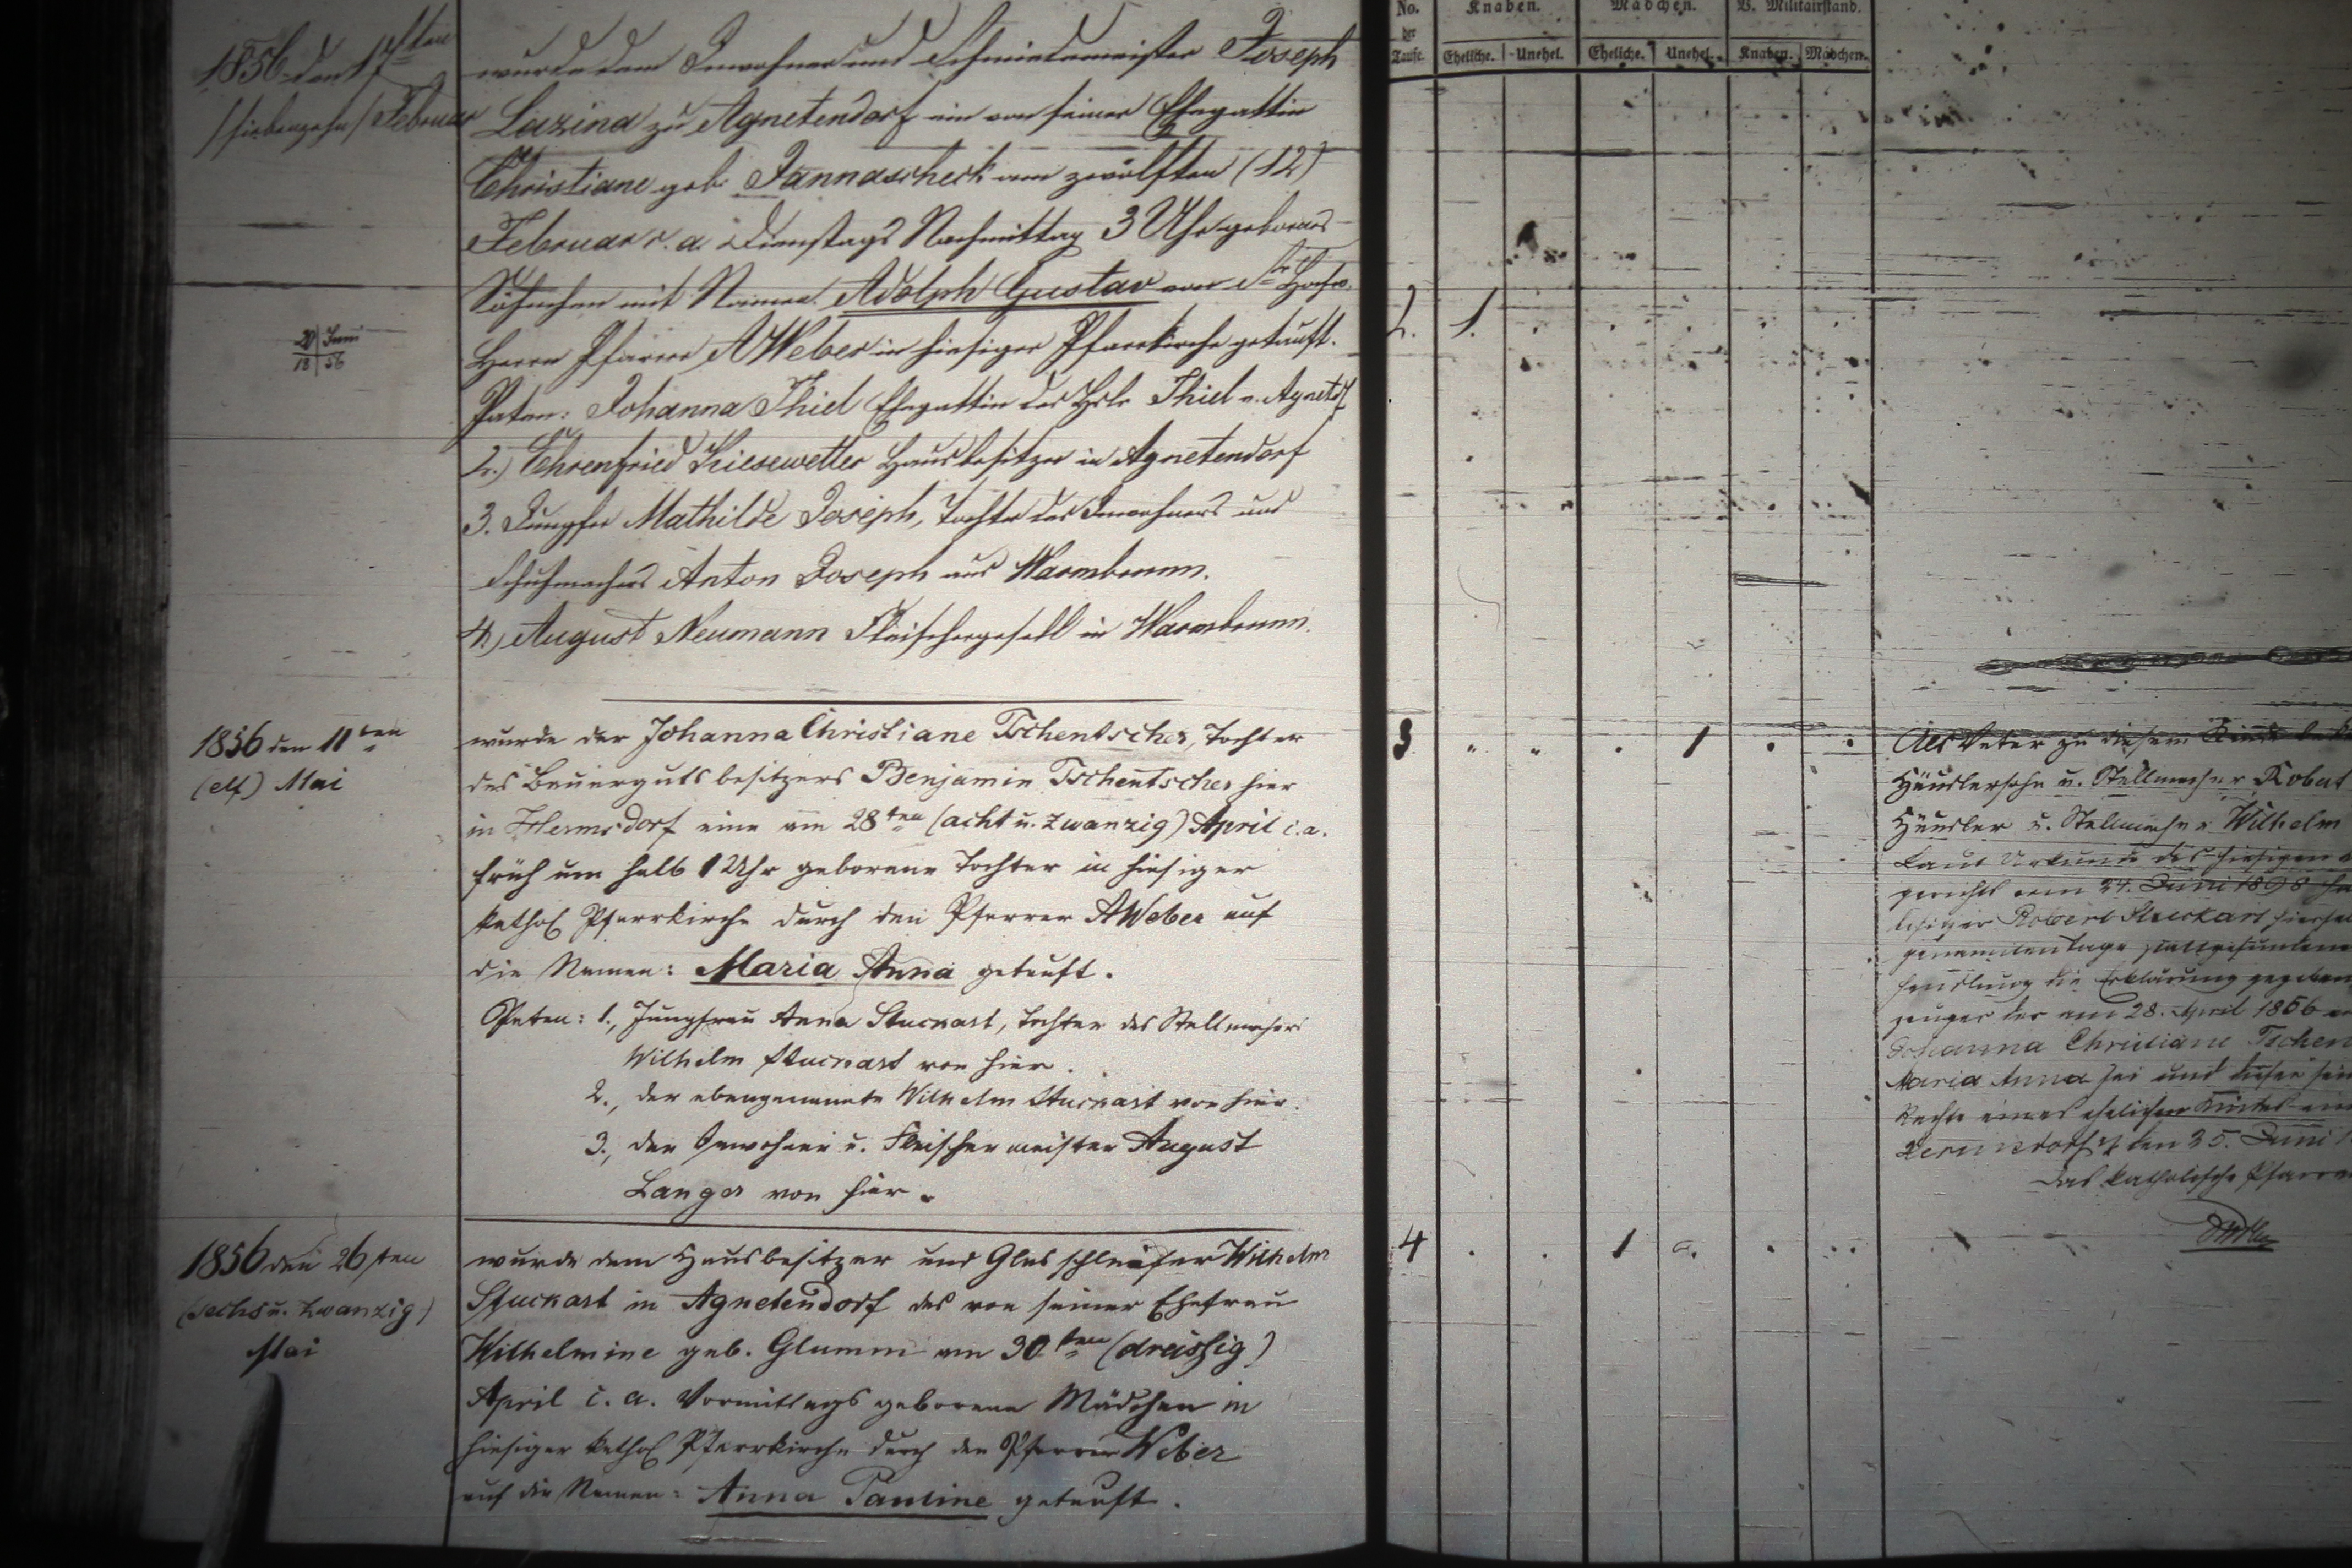 1856 den 17ten
/siebenzehn/ Februar
wurde dem Inwohner und Schmiedemeister Joseph
Lazina zu Agnetendorf ein von seiner Ehegattin
Christiane geb. Jannascheck am zwölften (12)
Februar c. a. Dienstags Nachmittag 3 Uhr geborenes
Söhnchen mit Namen Adolph Gustav von
20 Juni
18 56
Herrn Pfarrer A Weber in hiesiger Pfarrkirche getauft.
Paten: Johanna Thiel Ehegattin des Thiel v. Agnetdf
2.) Ehrenfried Kiesewetter Hausbesitzer in Agnetendorf
3. Jungfer Mathilde Joseph, Tochter des Inwohners und
Schuhmachers Anton Joseph aus Warmbrunn.
4.) August Neumann Fleischergesell in Warmbrunn.
1856 den 11ten
(elf) Mai
wurde der Johanna Christiane Tschentscher, Tochter
des Bauergutsbesitzers Benjamin Tschentscher hier
in Hermsdorf eine am 28ten (acht u. zwanzig) April c. a.
früh um halb 1 Uhr geborene Tochter in hiesiger
kathol Pfarrkirche durch den Pfarrer A Weber auf
die Namen: Maria Anna getauft.
Paten: 1., Jungfrau Anna Stuckart, Tochter des Stellmachers
Wilhelm Stuckart von hier.
2., der ebengenannte Wilhelm Stuckart von hier.
3., der Inwohner u. Fleischermeister August
Langer von hier.
1856 den 26ten
(sechs u. zwanzig)
Mai
wurde dem Hausbesitzer und Glasschleifer Wilhelm
Stuckart in Agnetendorf das von seiner Ehefrau
Wilhelmine geb. Glumm am 30ten (dreissig)
April c. a. Vormittags geborene Mädchen in
hiesiger kathol Pfarrkirche durch den Pfarrer Weber
auf die Namen: Anna Pauline getauft.
No. der Taufe.
Knaben.
Mädchen.
V. Militairstand.
Eheliche.
Unehel.
Eheliche.
Unehel.
Knaben.
Mädchen.
2. 1.
3 1
4 1
Als Vater zu diesem Kinde
Häuslersohn u. Stellmacher Robert
Häusler u. Stellmacher Wilhelm
Laut Urkunde des hiesigen
gerichts vom 24. Juni 1898
Robert Stuckart
genannten Tage stattgefundenen
handlung die Erklärung gegeben
zeuger der am 28. April 1856
Johanna Christiane Tschen
Maria Anna sei und dieser
Rechte eines ehelichen Kindes
den 25. Juni
Das katholische Pfarr